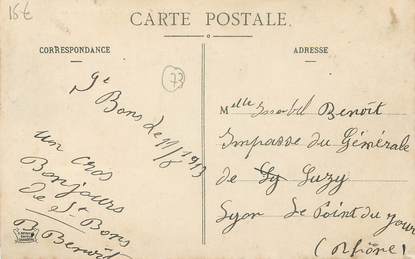 15€
CARTE POSTALE.
CORRESPONDANCE
ADRESSE
73
St
Bons le 11/8 1913
un Gros
Bonjours
de St Bons
B Benoit
Melle Benoit
Impasse du Générale
de Luzy
Lyon Le Point du Jour
(Rhône)